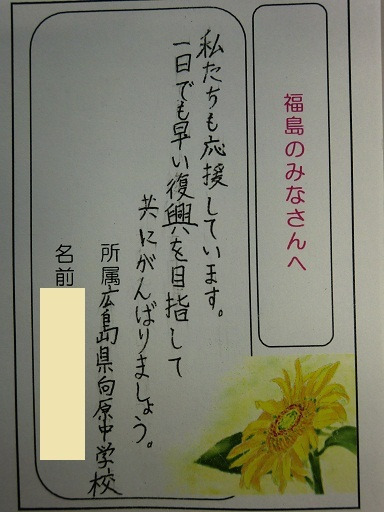 福島のみなさんへ
私たちも応援しています。
一日でも早い復興を目指して
共にがんばりましょう。
所属広島県向原中学校
名前